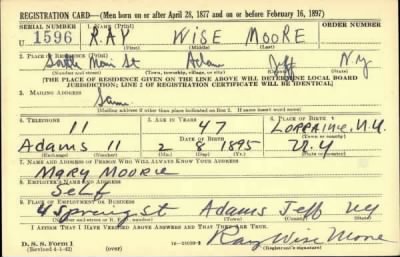 REGISTRATION CARD—(Men born on or after April 28, 1877 and on or before February 16, 1897)
SERIAL NUMBER 1. NAME (Print) ORDER NUMBER
U 1596 RAY WISE MOORE
(First) (Middle) (Last)
2. PLACE OF RESIDENCE (Print)
South Main St Adams Jeff N.y
(Number and street) (Town, township, village, or city) (County) (State)
[THE PLACE OF RESIDENCE GIVEN ON THE LINE ABOVE WILL DETERMINE LOCAL BOARD
JURISDICTION; LINE 2 OF REGISTRATION CERTIFICATE WILL BE IDENTICAL]
3. MAILING ADDRESS
Same
[Mailing address if other than place indicated on line 2. If same insert word same]
4. TELEPHONE 5. AGE IN YEARS 6. PLACE OF BIRTH
11 47 LORRAINE, N.Y.
DATE OF BIRTH (Town or county)
Adams 11 2 8 1895 N.Y
(Exchange) (Number) (Mo.) (Day) (Yr.) (State or country)
7. NAME AND ADDRESS OF PERSON WHO WILL ALWAYS KNOW YOUR ADDRESS
MARY MOORE
8. EMPLOYER'S NAME AND ADDRESS
SELF
9. PLACE OF EMPLOYMENT OR BUSINESS
4 Spring St Adams Jeff Ny
(Number and street or R. F. D. number) (Town) (County) (State)
I AFFIRM THAT I HAVE VERIFIED ABOVE ANSWERS AND THAT THEY ARE TRUE.
D. S. S. Form 1
(Revised 4-1-42) (over) Ray Wise Moore
(Registrant's signature)